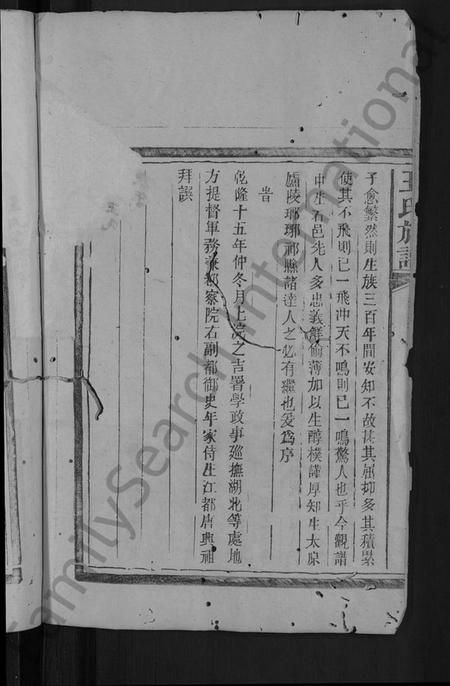 王氏族譜
予愈繁然則生族三百年間安知不故甚其屈抑多其積累
使其不飛則已一飛冲天不鳴則已一鳴驚人也乎今觀譜
中生右邑先人多忠義鮮偷薄加以生醇樸謹厚知生太原
廬陵瑯琊祁縣諸達人之必有繼也爰爲序
旹
乾隆十五年仲冬月上浣之吉署學政事巡撫湖北等處地
方提督軍務兼都察院右副都御史年家侍生江都唐興祖
拜譔
FamilySearch International